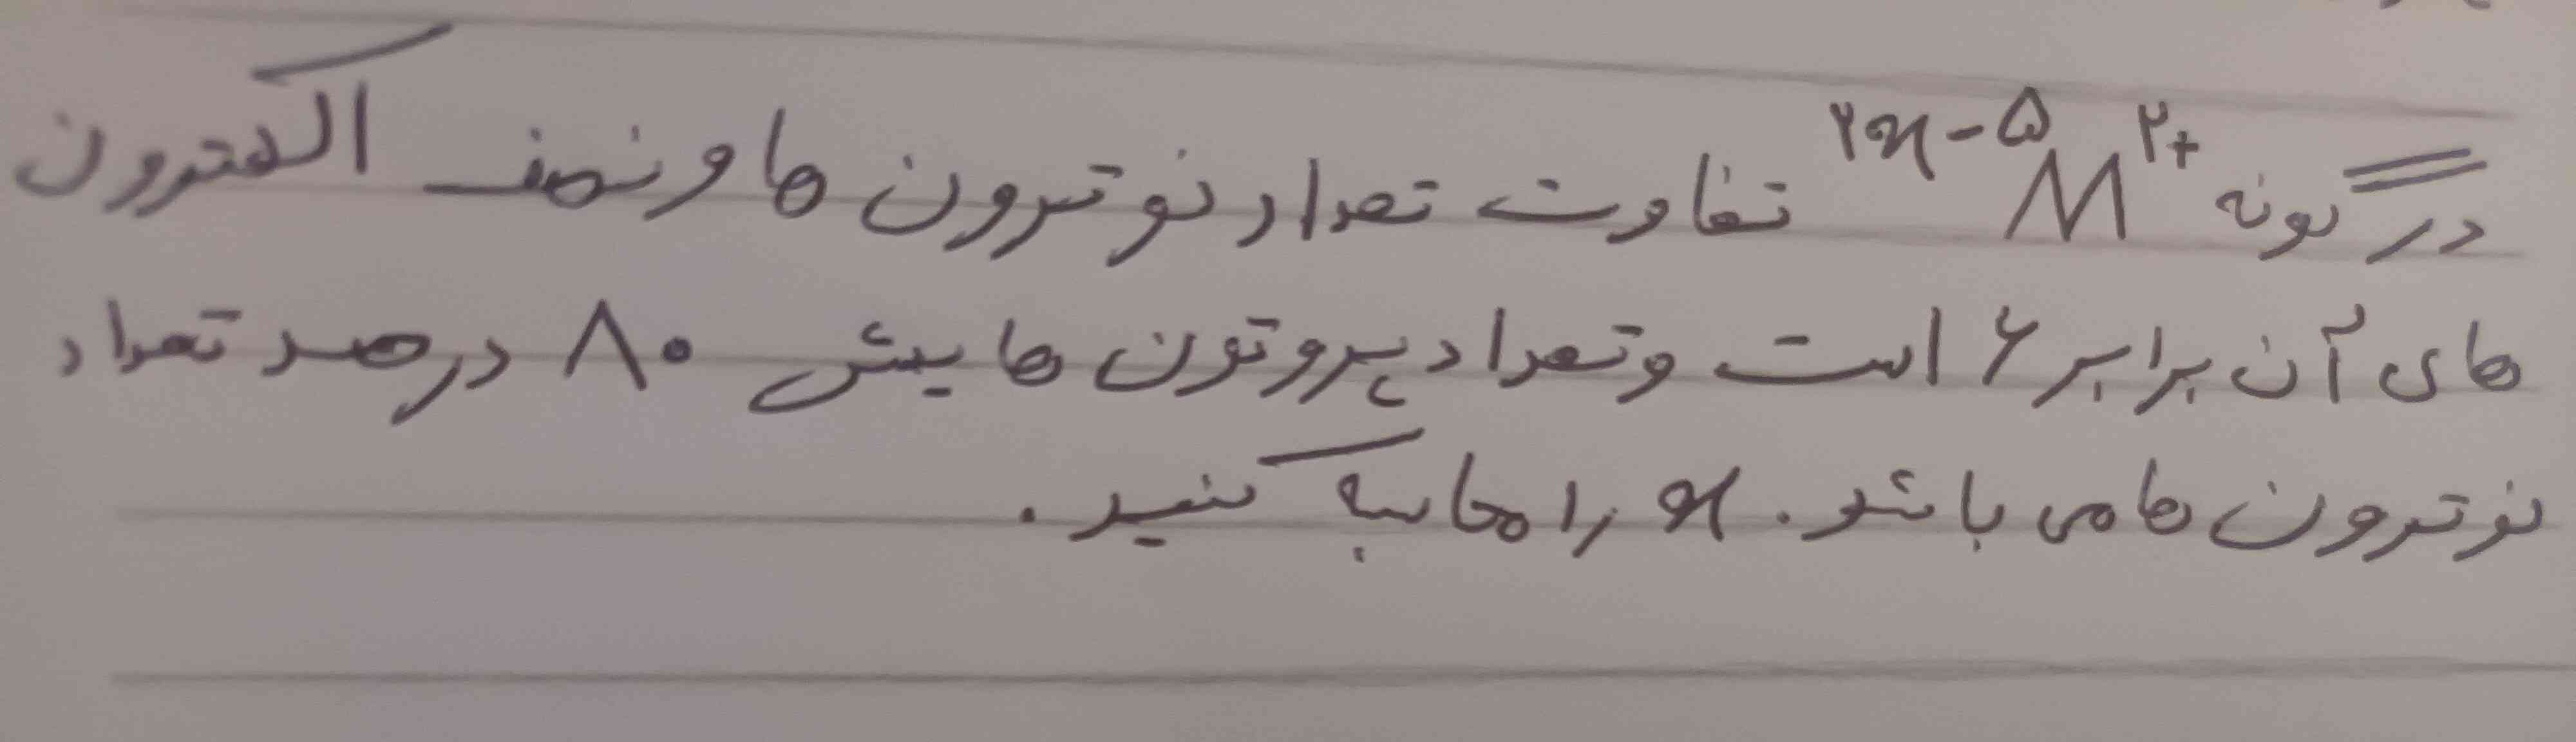 در گونه ²ˣ⁻⁵M²⁺ تفاوت تعداد نوترون ها و نصف الکترون
های آن برابر ۶ است و تعداد پروتون هایش ۸۰ درصد تعداد
نوترون ها می باشد. x را محاسبه کنید.